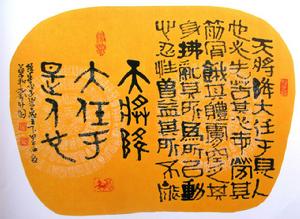 天將降大任于是人
也必先苦其心志勞其
筋骨餓其體膚空乏其
身拂亂其所為所以動
心忍性曾益其所不能
天將降
大任于
是人也